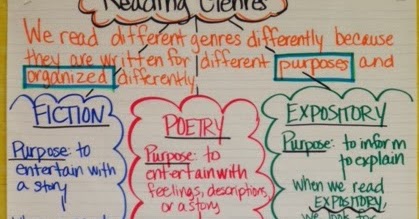 Reading Genres
We read different genres differently because
they are written for different purposes and
organized differently
FICTION
Purpose: to
entertain with
a story
POETRY
Purpose: to
entertain with
feelings, descriptions,
or a story
EXPOSITORY
Purpose: to inform
to explain
When we read
EXPOSITORY